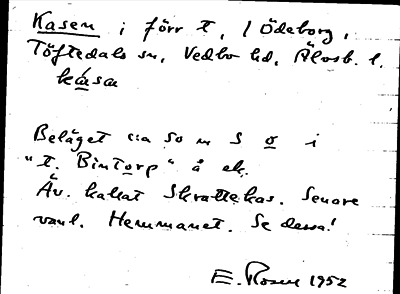 Kasen i förr t, / Ödeborg,
Töftedals sn, Vedbo hd, Älvsb. l.
kå̀sa
Beläget ca 50 m S o i
"t. Bintorp" å ek.
Äv. kallat Skrattekas. Senare
vanl. Hemmanet. Se dessa!
E. Rosen 1952